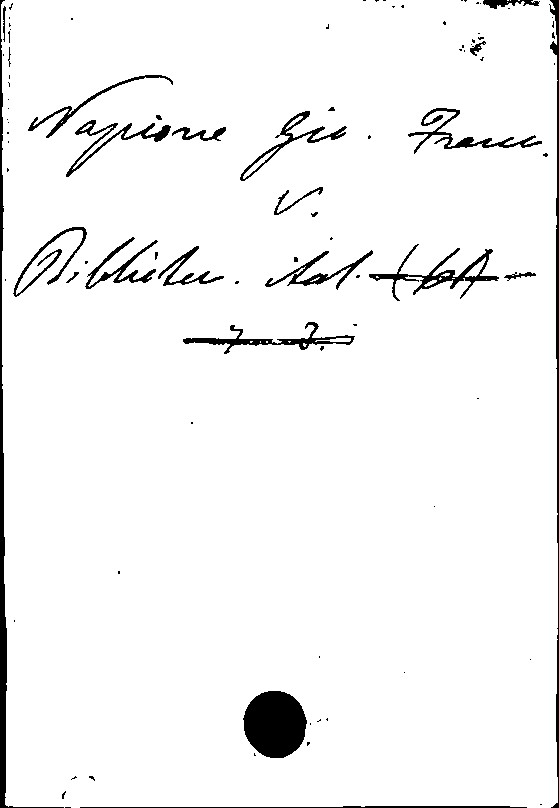 Napione Gio. Franc.
V.
Bibliotec. ital.